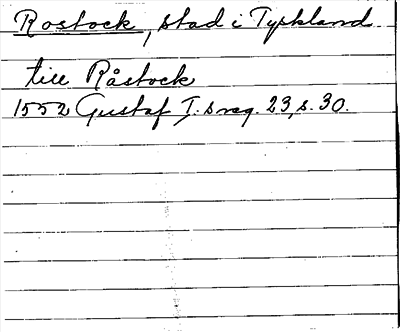 Rostock, stad i Tyskland.
till Råstock
1552 Gustaf I:s reg. 23, s. 30.